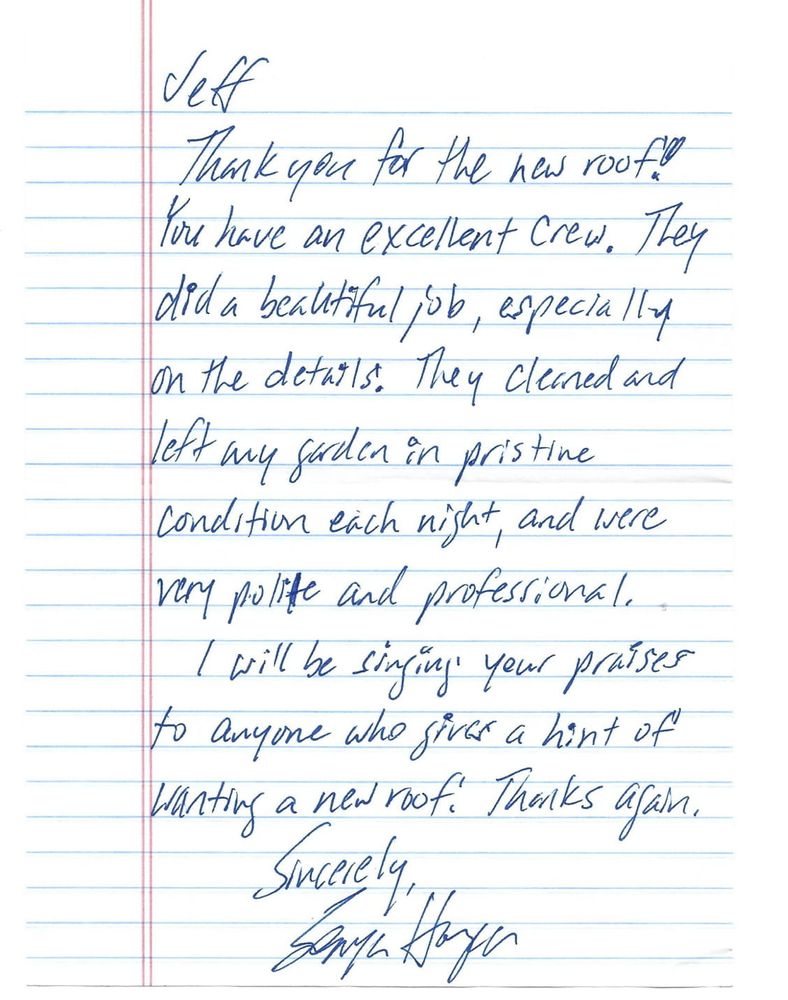 Jeff
Thank you for the new roof!
You have an excellent crew. They
did a beautiful job, especially
on the details. They cleaned and
left my garden in pristine
condition each night, and were
very polite and professional.
I will be singing your praises
to anyone who gives a hint of
wanting a new roof. Thanks again.
Sincerely,